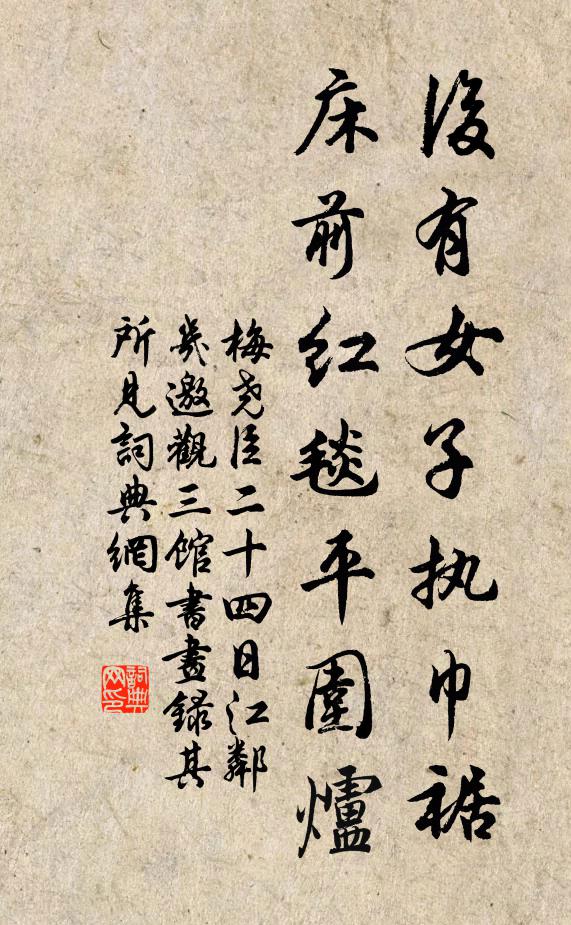 後有女子执巾裾
床前红毯平圍爐
梅尧臣二十四日江鄰
幾邀觀三館書畫録其
所見詞典網集
詞典网印